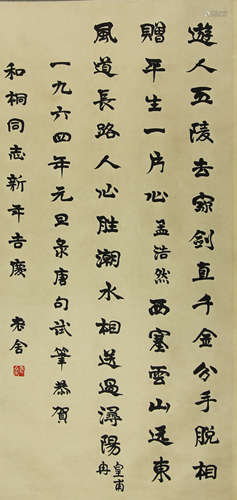 遊人五陵去寶劍直千金分手脫相
贈平生一片心孟浩然西塞雲山遠東
風道長路人心勝潮水相送過潯陽皇甫冉
一九六四年元旦录唐句試筆恭賀
和桐同志新年吉慶 老舍